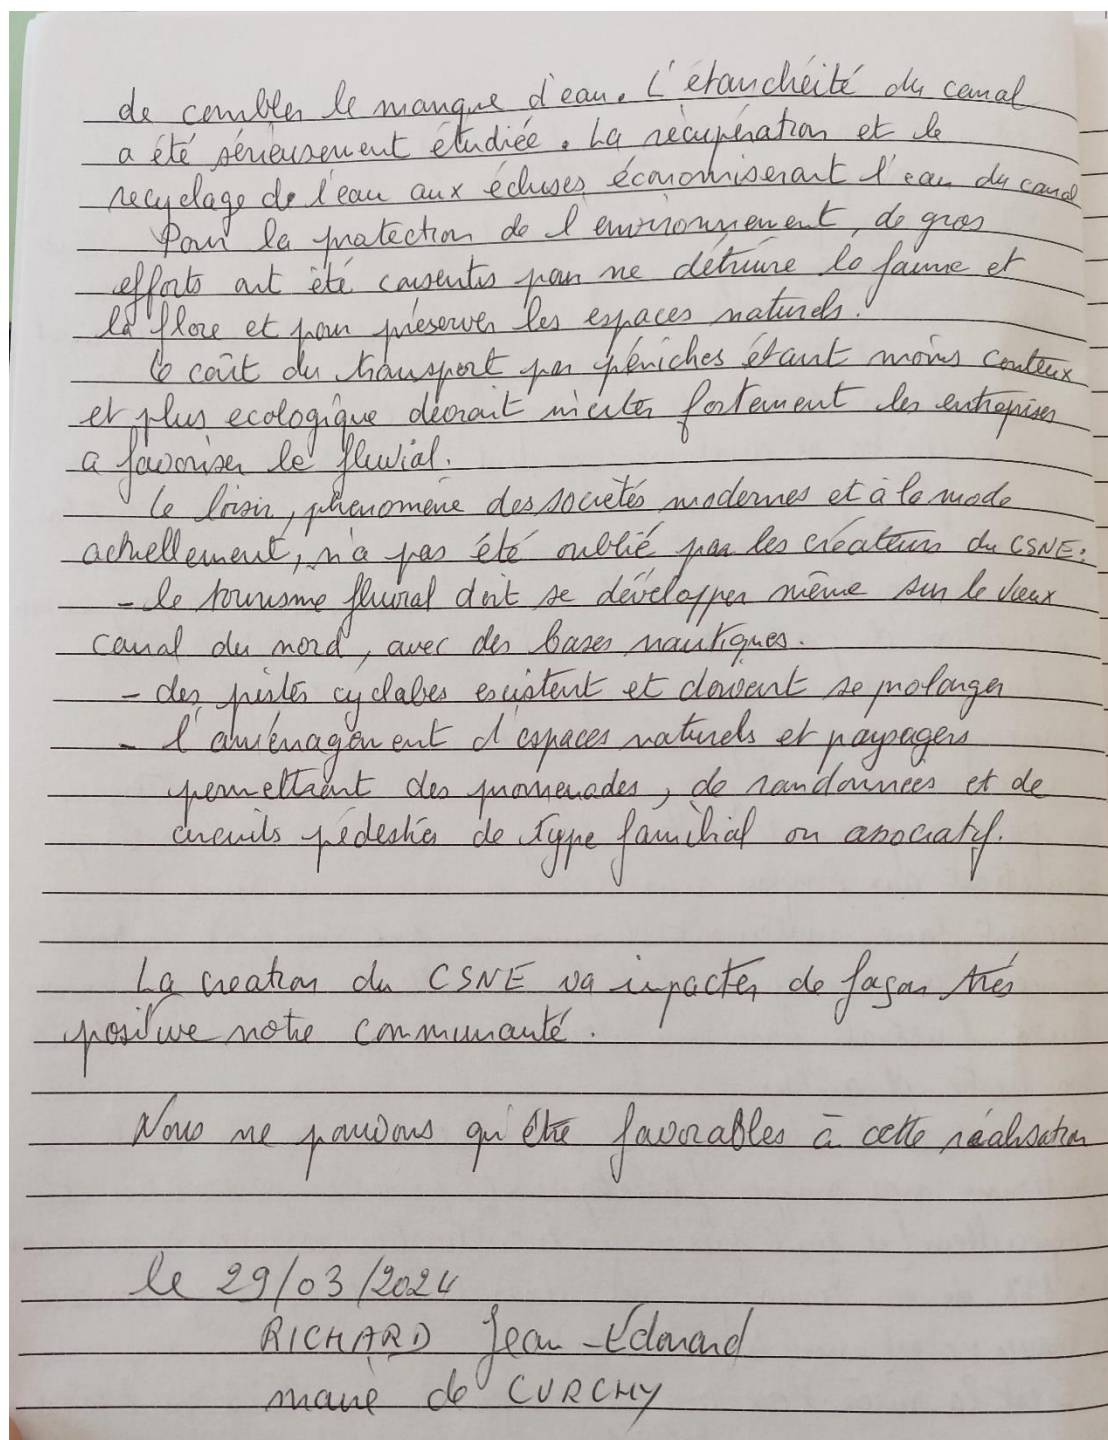 de combler le manque d'eau. L'étanchéité du canal
a été sérieusement étudiée. La récupération et le
recyclage de l'eau aux écluses économiseront l'eau du canal
Pour la protection de l'environnement, de gros
efforts ont été consentis pour ne détruire la faune et
la flore et pour préserver les espaces naturels.
Le coût du transport par péniches étant moins couteux
et plus ecologique devrait inciter fortement les entreprises
a favoriser le fluvial.
Le loisir, phénomène des sociétés modernes et à la mode
actuellement, n'a pas été oublié par les créateurs du CSNE:
- le tourisme fluvial doit se développer même sur le vieux
canal du nord, avec des bases nautiques.
- des pistes cyclabes existent et doivent se prolonger
- l'aménagement d'espaces naturels et paysagers
permettront des promenades, de randonnées et de
circuits pédestres de type familial ou associatif.
La création du CSNE va impacter de façon très
positive notre communauté.
Nous ne pouvons qu'être favorables à cette réalisation
le 29/03/2024
RICHARD Jean-Edouard
maire de CURCHY